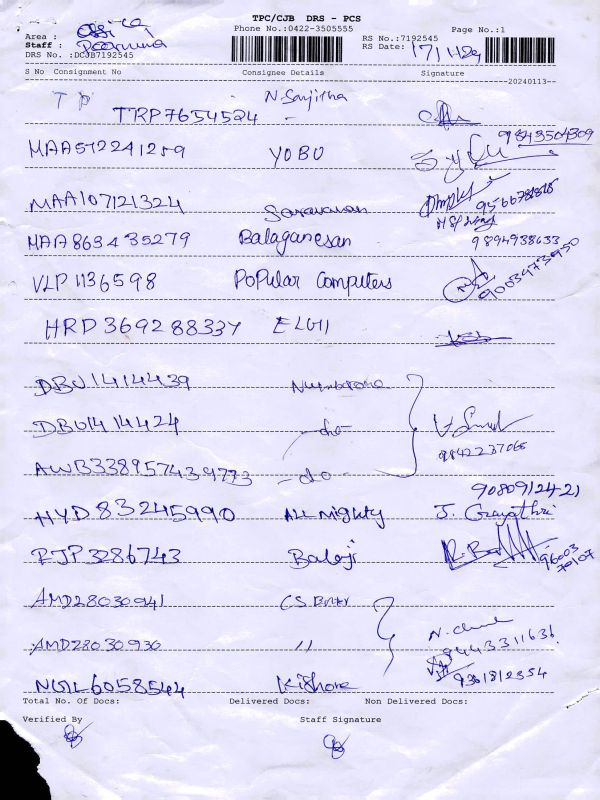 TPC/CJB DRS - PCS
Phone No.:0422-3505555
Page No.:1
Area :
Staff :
DRS No. :DCJB7192545
RS No.:7192545
RS Date: 17/1/24
S No Consignment No Consignee Details Signature
20240113
TP N. Sanjitha
TRP7654524 -
MAA512241259 YOBU 9843504309
MAA107121324 Saravanan
MAA863435279 Balaganesan 9894938633
VLP1136598 Popular Computers 9003473950
HRD369288337 ELGI
DBU1414439
DBU1414424 -do-
9842237068
AWB338957439773 -do-
HYD83245990 ALL Mighty J. Gayathri
RJP3286743 Balaji
AMD28030941 CS
AMD28030930 "
9443311636
NGL6058544 Kishore 9361812354
Total No. Of Docs: Delivered Docs: Non Delivered Docs:
Verified By Staff Signature